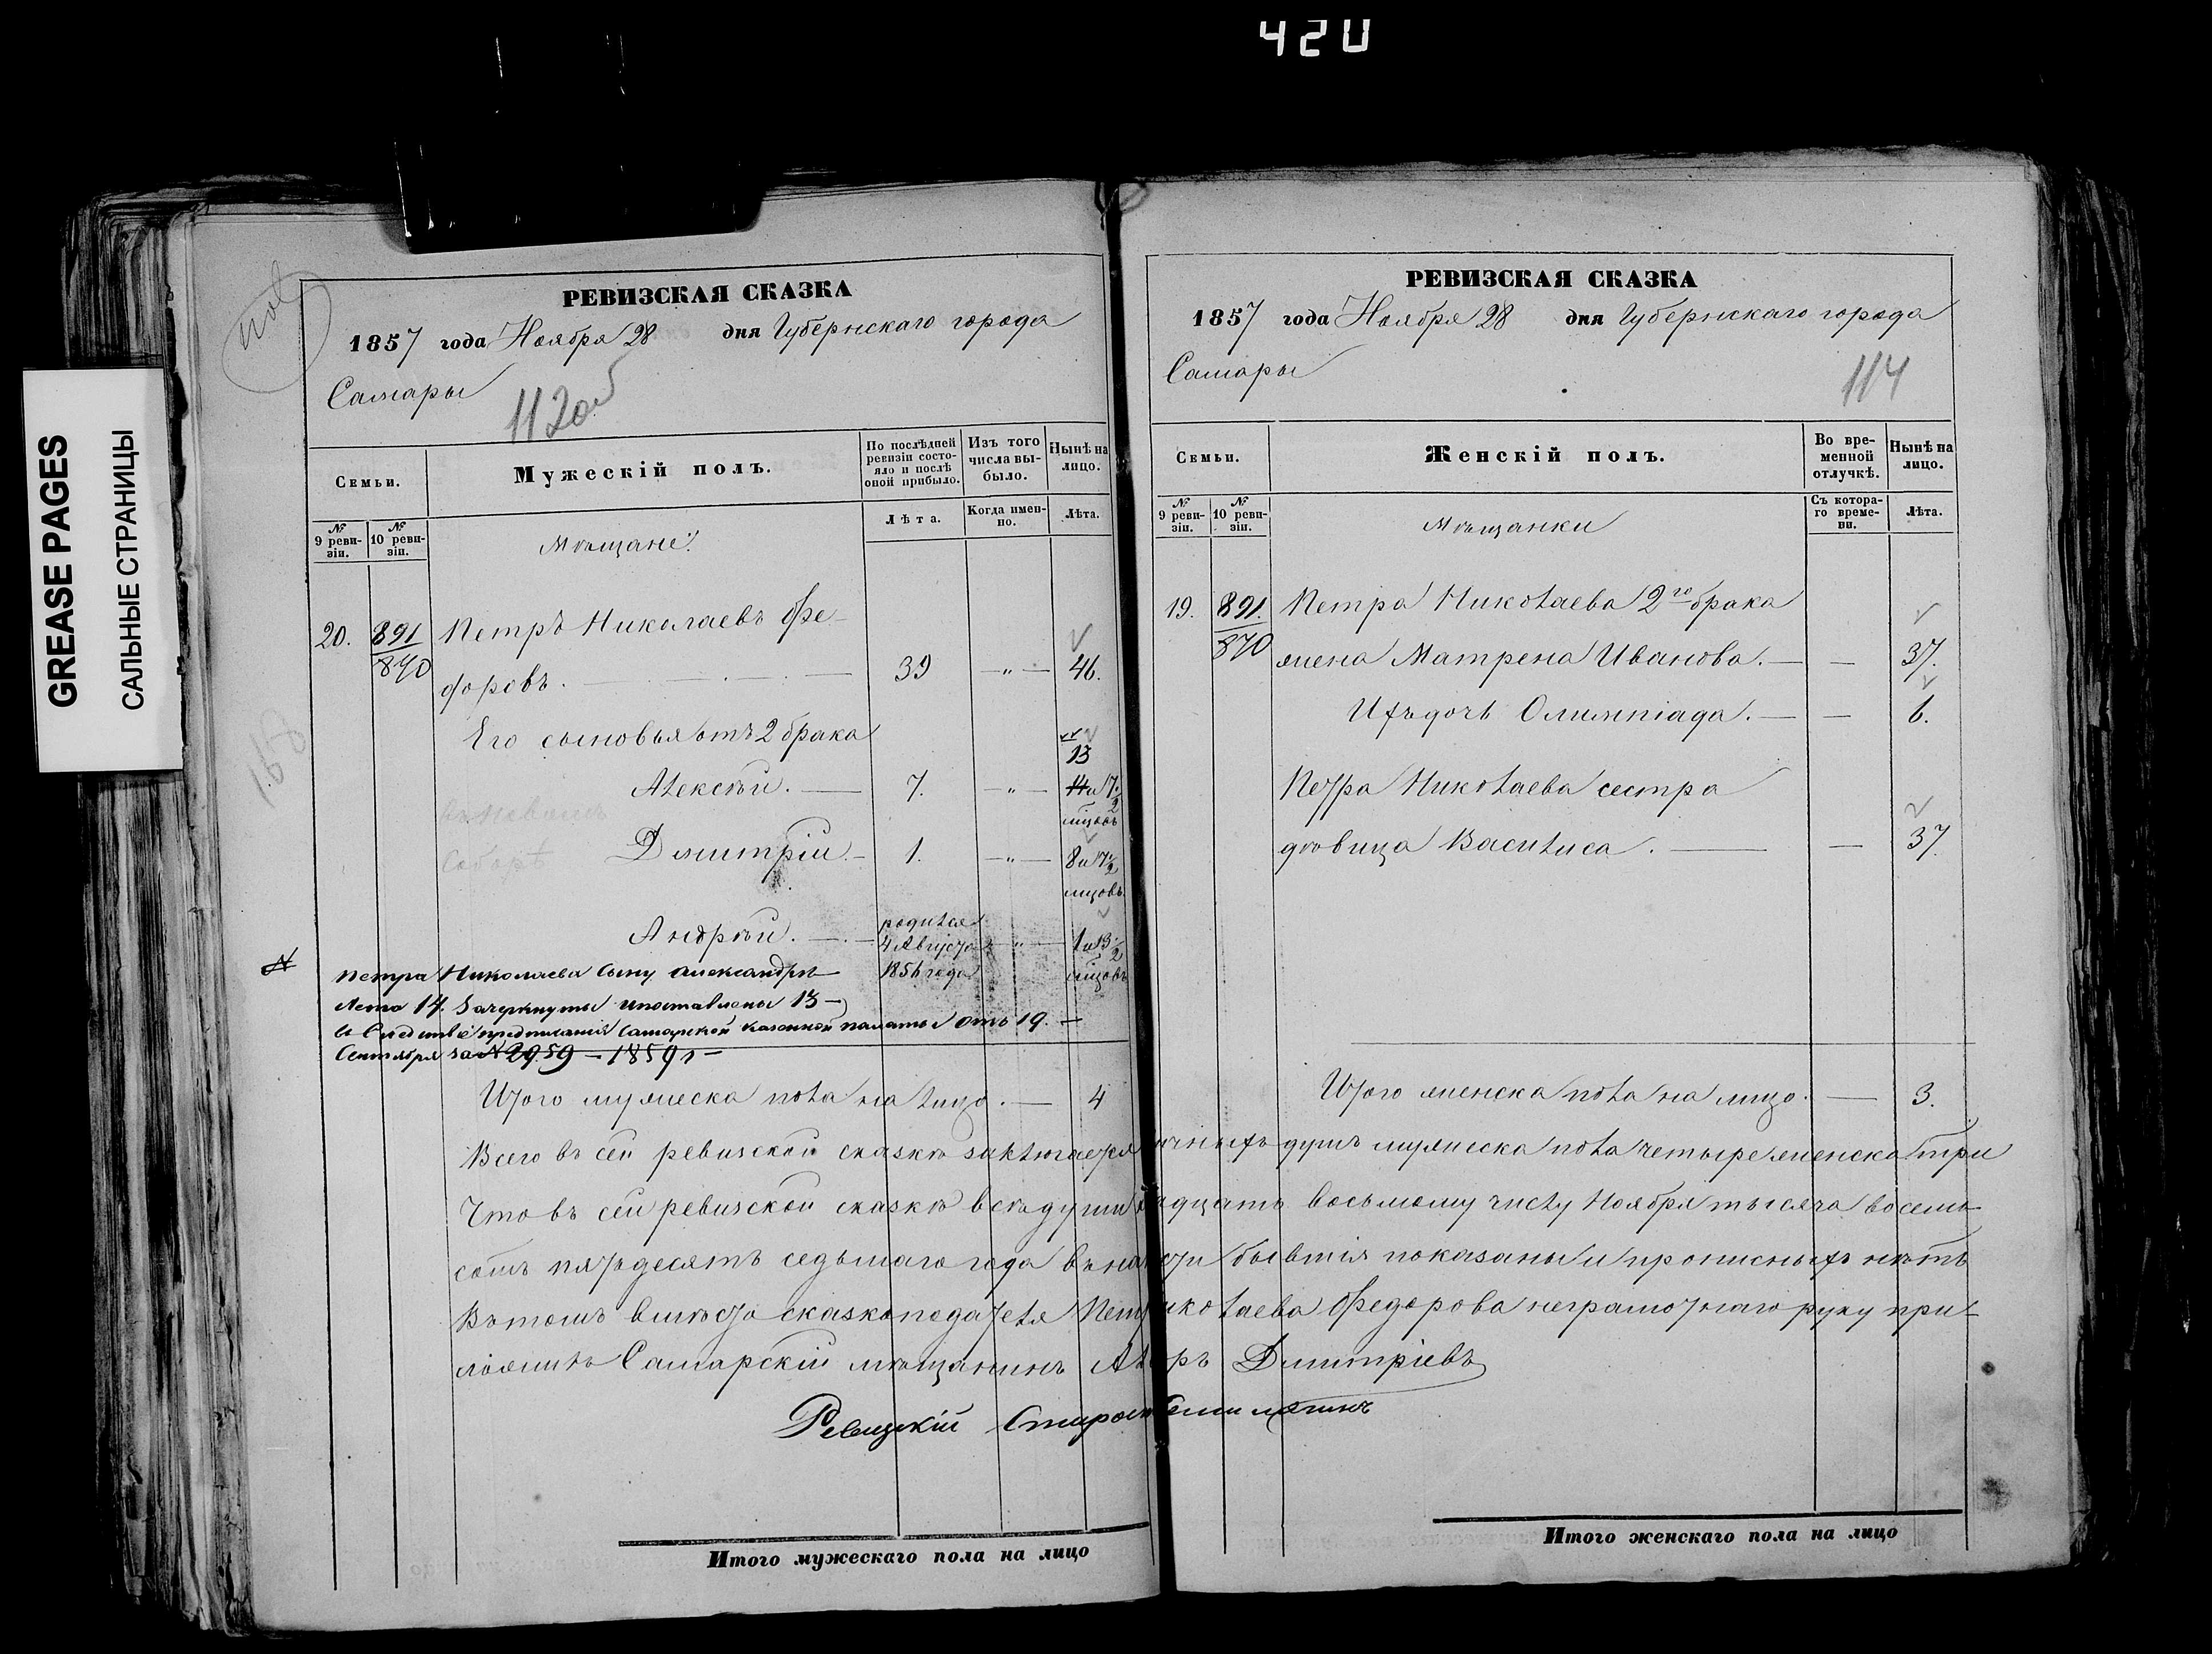 420
GREASE PAGES
САЛЬНЫЕ СТРАНИЦЫ
РЕВИЗСКАЯ СКАЗКА
1857 года Ноября 28 дня Губернскаго города
Самары
112 об
Семьи.
Мужескій полъ.
По послѣдней ревизіи состояло и послѣ оной прибыло.
Изъ того числа выбыло.
Нынѣ на лицо.
№ 9 ревизіи.
№ 10 ревизіи.
Мѣщане.
Лѣта.
Когда именно.
Лѣта.
20. 891 Петръ Николаевъ Фе-
870 доровъ. 39 — „ — 46.
Его сыновья отъ 2 брака
13
Алексѣй. — 7. — „ — 14 и 7 ½
мѣцовъ
Дмитрій. — 1. — „ — 8 и 7 ½
мцовъ.
Андрѣй. — родился
4 Августа — „ — 1 и 3 ½
1856 года мѣцовъ
Петра Николаева сыну Александру
лета 14. Зачеркнуты и поставлены 13 —
в следствіе предписанія Самарской Казенной палаты отъ 19. —
Сентября за № 2959 — 1859 г —
Итого мужеска пола на лицо. — 4
Всего въ сей ревизской сказкѣ заключается
Что въ сей ревизской сказкѣ всѣ души
сотъ пятьдесятъ седьмаго года въ на
Въ томъ вмѣсто сказкоподателя Пет
ложилъ Самарскій мѣщанинъ
Ревизскій Старо
Итого мужескаго пола на лицо
РЕВИЗСКАЯ СКАЗКА
1857 года Ноября 28 дня Губернскаго города
Самары
114
Семьи.
Женскій полъ.
Во временной отлучкѣ.
Нынѣ на лицо.
№ 9 ревизіи.
№ 10 ревизіи.
Мѣщанки
Съ котораго времени.
Лѣта.
19. 891. Петра Николаева 2го брака
870 жена Матрена Иванова. — — 37.
Ихъ дочь Олимпіада. — — 6.
Петра Николаева сестра
дѣвица Василиса. — — 37.
Итого женска пола на лицо. — 3.
ичныхъ душъ мужеска пола четыре женска три
адцать восьмому числу Ноября тысяча восемь
сти бывшія показаны и прописныхъ нѣтъ
иколаева Федорова неграмотнаго руку при-
ръ Дмитріевъ
Итого женскаго пола на лицо